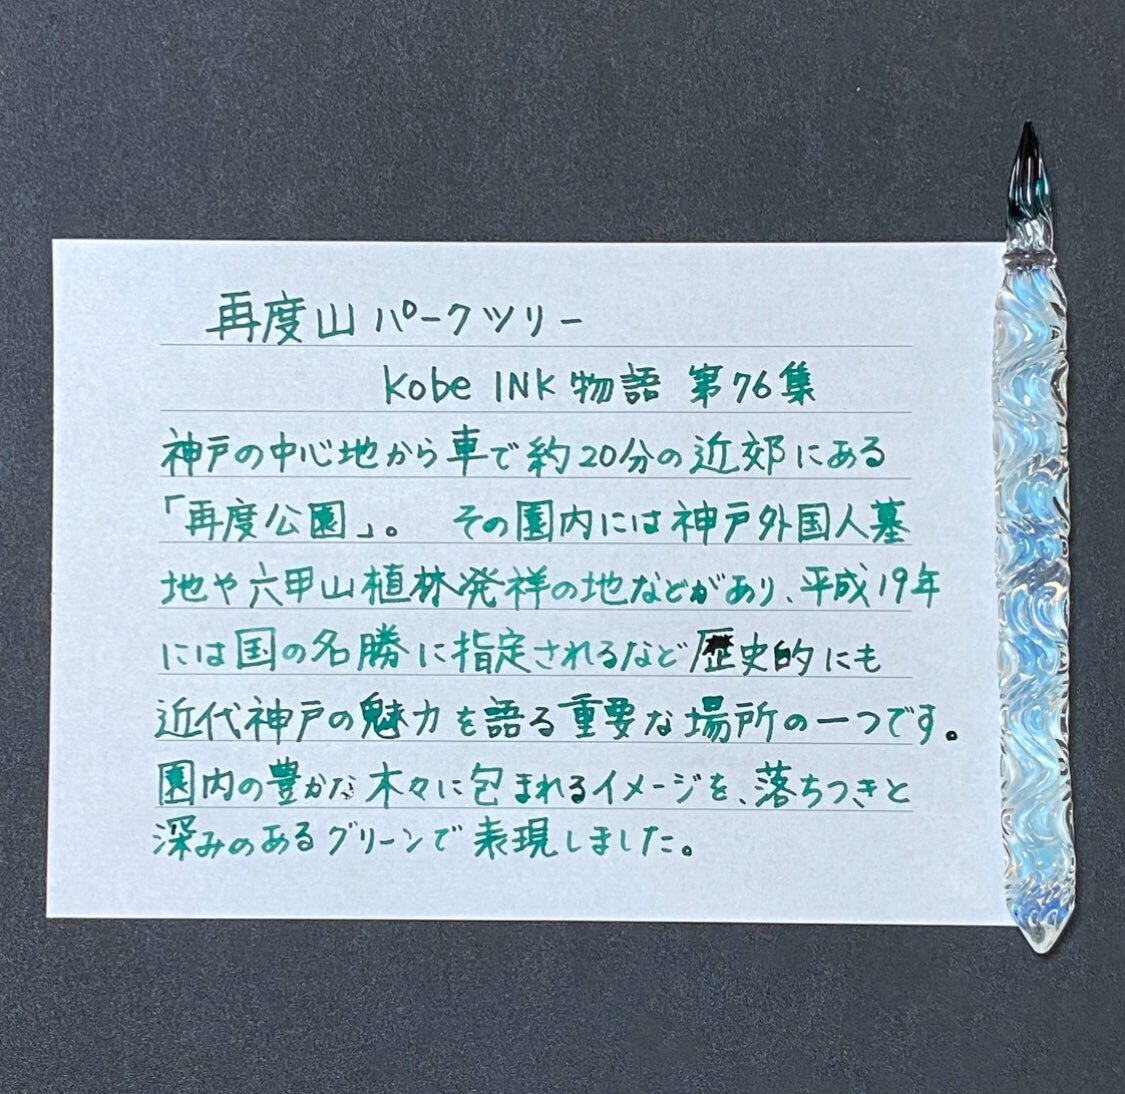 再度山パークツリー
Kobe INK物語 第76集
神戸の中心地から車で約20分の近郊にある
「再度公園」。 その園内には神戸外国人墓
地や六甲山植林発祥の地などがあり、平成19年
には国の名勝に指定されるなど歴史的にも
近代神戸の魅力を語る重要な場所の一つです。
園内の豊かな木々に包まれるイメージを、落ちつきと
深みのあるグリーンで表現しました。